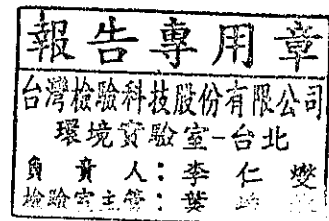 報告專用章
台灣檢驗科技股份有限公司
環境實驗室-台北
負責人:李仁燮
檢驗室主管:葉